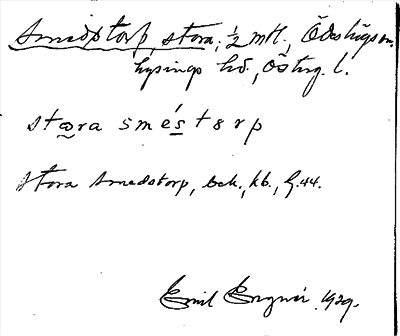 Smedstorp, stora, ½ mtl., Ödeshögs sn.
Lysings hd., Österg. l.
stora smés̲t8rp
Stora Smedstorp, bok., kb., G.44.
Emil 1929.